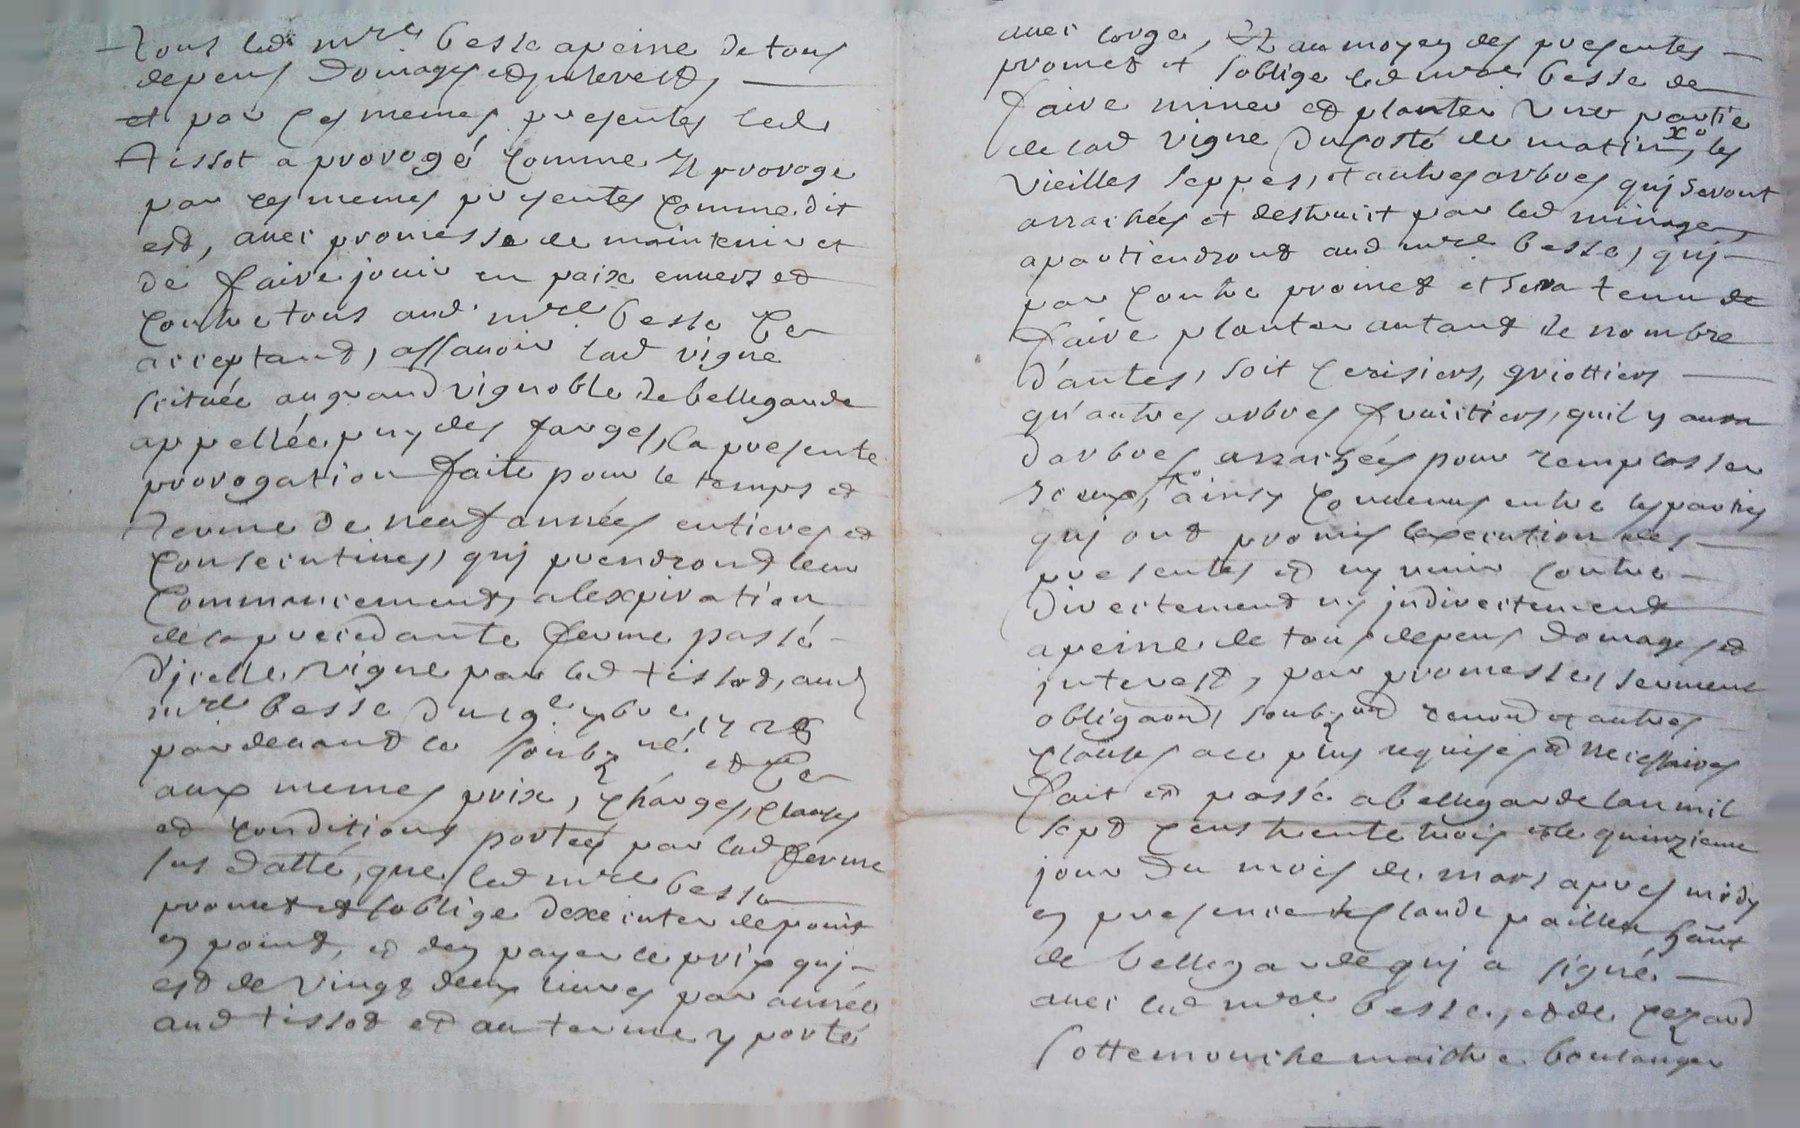 tous led mre besse a peine de tous
depens domages et interest,
et par ces memes presentes led
tissot a prorogé comme il proroge
par ces memes presentes comme dit
est, avec promesse de maintenir et
de faire jouir en paix envers et
contre tous aud mre besse ce
acceptant, assavoir lad vigne
scituée au grand vignoble de bellegarde
appellée puy des fanges, la presente
prorogation faite pour le temps et
terme de neuf années entieres et
consecutives, qui prendront leur
commancement, a lexpiration
de la precedante ferme passé
d'icelle vigne par led tissot, aud
mre besse du 19e 7bre 1728
pardevant le soubz né et ce
aux memes prix, charges, clauses
et conditions portées par lad ferme
sus datté, que led mre besse
promet et soblige dexecuter de point
en point, et den payer le prix qui
est de vingt deux livres par année
aud tissot et au terme y porté
avec lorge, Et au moyen des presentes
promet et soblige led mre besse de
faire miner et planter une partie
de lad vigne du costé de matin, les xo
vieilles seppes, et autres arbres qui seront
arrachées et destruit par led minage,
apartiendront aud mre besse, qui
par contre promet et sera tenu de
faire planter autant de nombre
d'antes, soit cerisiers, griottiers
qu'autres arbres fruictiers, quil y aura
d'arbres arrachées pour remplasser
iceux, ainsy convenus entre les parties
qui ont promis lexecution des
presentes et ny venir contre
directement ny indirectement
a peine de tous depens domages et
interest, par promesses, serment
obligaons, soubz on renon et autres
clauses a ce plus requises et necessaires
fait et passé a bellegarde lan mil
sept cens trente trois et le quinzieme
jour du mois de mars apres midy
en presence de Claude paillet, habnt
de bellegarde qui a signé
avec led mre besse, et de Cezard
sottemouche maistre boulanger